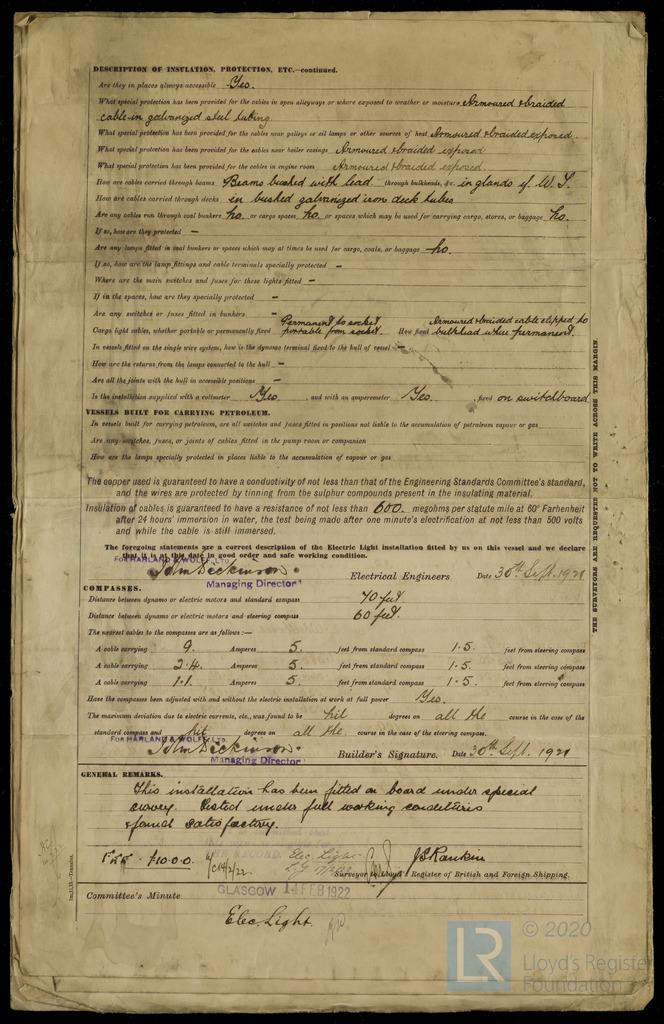 DESCRIPTION OF INSULATION, PROTECTION, ETC.—continued.
Are they in places always accessible Yes.
What special protection has been provided for the cables in open alleyways or where exposed to weather or moisture Armoured & braided
cable in galvanized steel tubing.
What special protection has been provided for the cables near galleys or oil lamps or other sources of heat Armoured & braided exposed.
What special protection has been provided for the cables near boiler casings Armoured & braided exposed
What special protection has been provided for the cables in engine room Armoured & braided exposed.
How are cables carried through beams Beams bushed with lead through bulkheads, &c. in glands if W.T.
How are cables carried through decks in bushed galvanized iron deck tubes
Are any cables run through coal bunkers No. or cargo spaces No. or spaces which may be used for carrying cargo, stores, or baggage No.
If so, how are they protected —
Are any lamps fitted in coal bunkers or spaces which may at times be used for cargo, coals, or baggage No.
If so, how are the lamp fittings and cable terminals specially protected —
Where are the main switches and fuses for these lights fitted —
If in the spaces, how are they specially protected —
Are any switches or fuses fitted in bunkers —
Cargo light cables, whether portable or permanently fixed Permanent to socket portable from socket. How fixed Armoured & braided cable clipped to bulkhead where permanent.
In vessels fitted on the single wire system, how is the dynamo terminal fixed to the hull of vessel —
How are the returns from the lamps connected to the hull —
Are all the joints with the hull in accessible positions —
Is the installation supplied with a voltmeter Yes. and with an amperemeter Yes. fixed on switchboard
VESSELS BUILT FOR CARRYING PETROLEUM.
In vessels built for carrying petroleum, are all switches and fuses fitted in positions not liable to the accumulation of petroleum vapour or gas
Are any switches, fuses, or joints of cables fitted in the pump room or companion
How are the lamps specially protected in places liable to the accumulation of vapour or gas
The copper used is guaranteed to have a conductivity of not less than that of the Engineering Standards Committee's standard,
and the wires are protected by tinning from the sulphur compounds present in the insulating material.
Insulation of cables is guaranteed to have a resistance of not less than 600. megohms per statute mile at 60° Farhenheit
after 24 hours' immersion in water, the test being made after one minute's electrification at not less than 500 volts
and while the cable is still immersed.
The foregoing statements are a correct description of the Electric Light installation fitted by us on this vessel and we declare
that it is at this date in good order and safe working condition.
FOR HARLAND & WOLFF, LTD.
John Dickinson. Electrical Engineers Date 30th Sept. 1921
Managing Director
COMPASSES.
Distance between dynamo or electric motors and standard compass 70 feet
Distance between dynamo or electric motors and steering compass 60 feet.
The nearest cables to the compasses are as follows:—
A cable carrying 9. Amperes 5. feet from standard compass 1.5. feet from steering compass
A cable carrying 2.4. Amperes 5. feet from standard compass 1.5. feet from steering compass
A cable carrying 1.1. Amperes 5. feet from standard compass 1.5. feet from steering compass
Have the compasses been adjusted with and without the electric installation at work at full power Yes.
The maximum deviation due to electric currents, etc., was found to be Nil degrees on all the course in the case of the
standard compass and Nil degrees on all the course in the case of the steering compass.
FOR HARLAND & WOLFF, LTD.
John Dickinson. Builder's Signature. Date 30th Sept. 1921
Managing Director
GENERAL REMARKS.
This installation has been fitted on board under special
survey. Tested under full working conditions
& found satisfactory.
Fee £10.0.0 Elec. Light
J S Rankin
Surveyor to Lloyd's Register of British and Foreign Shipping.
GLASGOW 14 FEB 1922
Committee's Minute
Elec Light.
THE SURVEYORS ARE REQUESTED NOT TO WRITE ACROSS THIS MARGIN
© 2020
LR
Lloyd's Register
Foundation